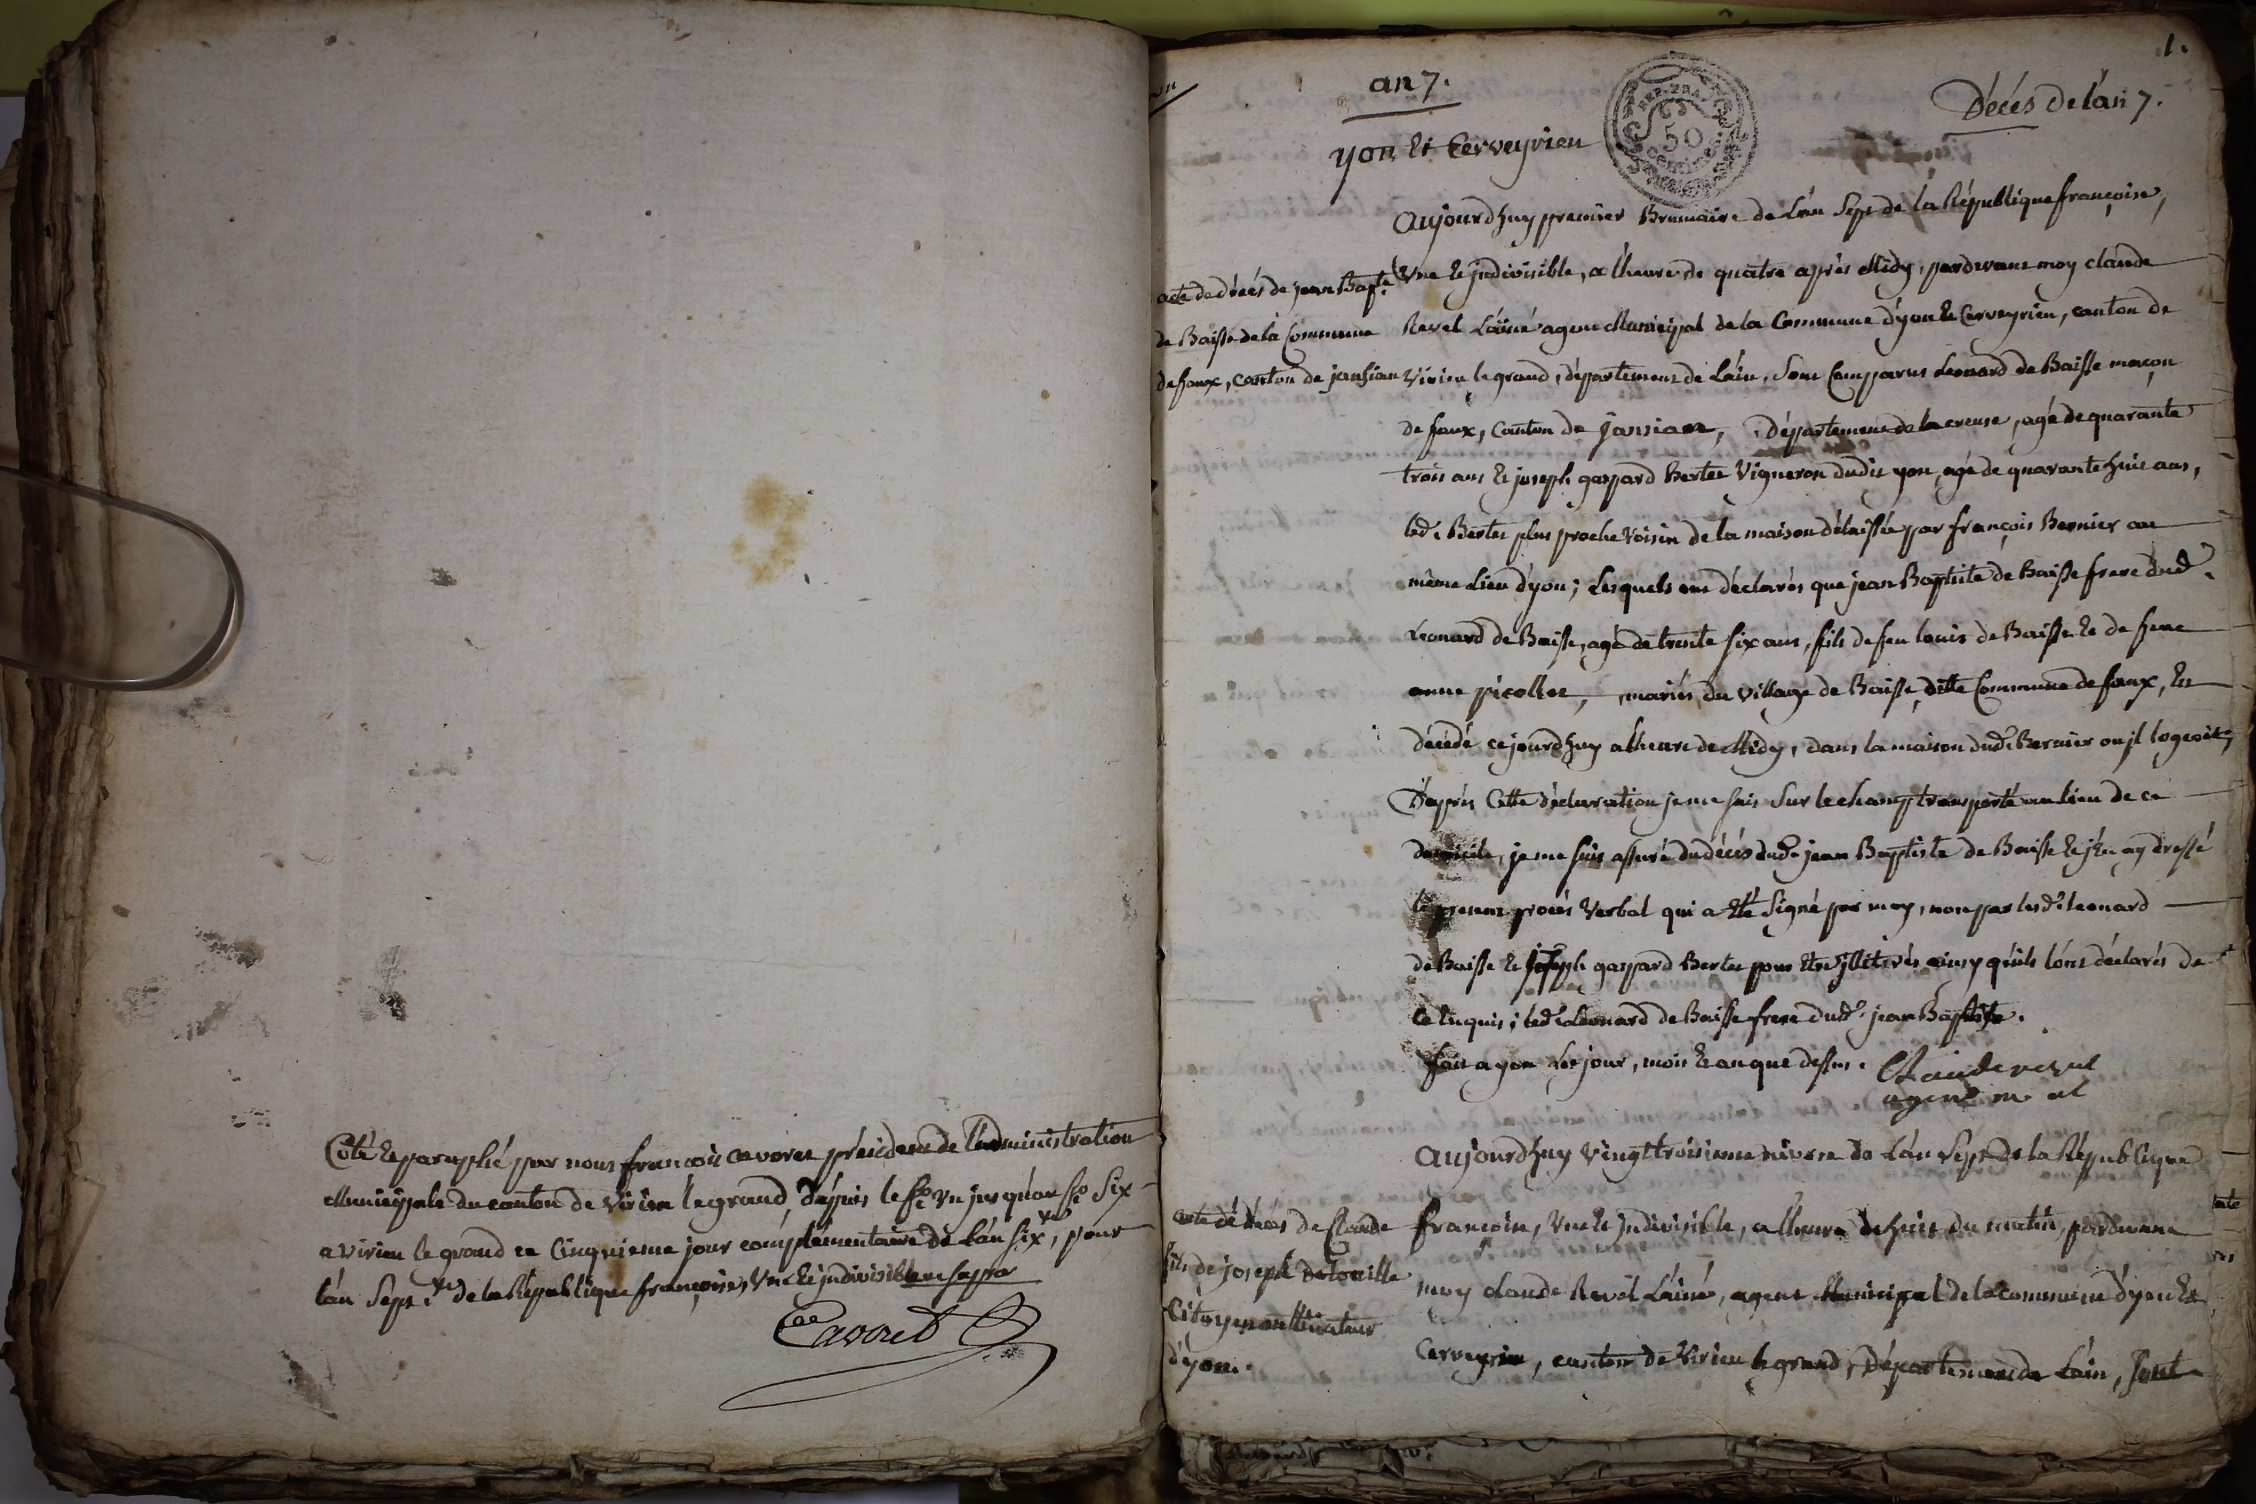 Côté et paraphé par nous françois cavoret président de l'administration
Municipale du canton de virieu le grand, depuis le f.o un jusqu'au f.o six
a virieu le grand ce cinquieme jour complémentaire de l'an six, pour
l'an sept.e de la République françoise, Une et indivisible
Cavoret
1.
an 7.
Décés de l'an 7.
yon et Cerveyrieu
REP. FRA.
50
Aujourdhuy premier Brumaire de L'an Sept de la République françoise,
acte de décés de jean Bapte
de Baisse de la Commune
de faux, canton de jansian
Une et jndivisible, a lheure de quatre après Midy, pardevant moy claude
Revel L'ainé agent Municipal de la Commune d'yon et Cerveyrieu, canton de
Virieu le grand, département de L'ain, Sont Comparus Leonard de Baisse maçon
de faux, Canton de jansian, département de la creuse, agé de quarante
trois ans et joseph gaspard Bertet Vigneron dudit yon, agé de quarante huit ans,
led. Bertet plus proche voisin de la maison délaissée par françois Bernier au
même Lieu d'yon; Lesquels ont déclarés que jean Baptiste de Baisse frere dud.
Leonard de Baisse, agé de trente six ans, fils de feu louis de Baisse et de feue
anne picollet, mariés, du village de Baisse, ditte Commune de faux, Est
décédé cejourdhuy a lheure de Midy, dans la maison dud. Bernier ou jl logeoit;
D'après Cette déclaration je me suis Sur le champ transporté au lieu de ce
domicile, je me suis assuré du décés dud. jean Baptiste de Baisse et j'En ay dressé
le present procés Verbal qui a Eté Signé par moy, non par lesd. leonard
de Baisse et joseph gaspard Bertet pour Etre jllitérés ainsy qu'ils l'ont déclarés de
ce Enquis; led. Léonard de Baisse frere dud. jean Baptiste.
fait a yon Les jour, mois et an que dessus.
Claude revel
agent m al
Aujourdhuy Vingt troisieme nivose de L'an Sept de la République
acte de décés de Claude
fils de joseph
Citoyen
d'yon.
françoise, Une et Indivisible, a lheure de huit du matin, pardevant
moy claude Revel L'ainé, agent Municipal de la commune d'yon et
Cerveyrieu, canton de Virieu le grand, Département de L'ain, Sont